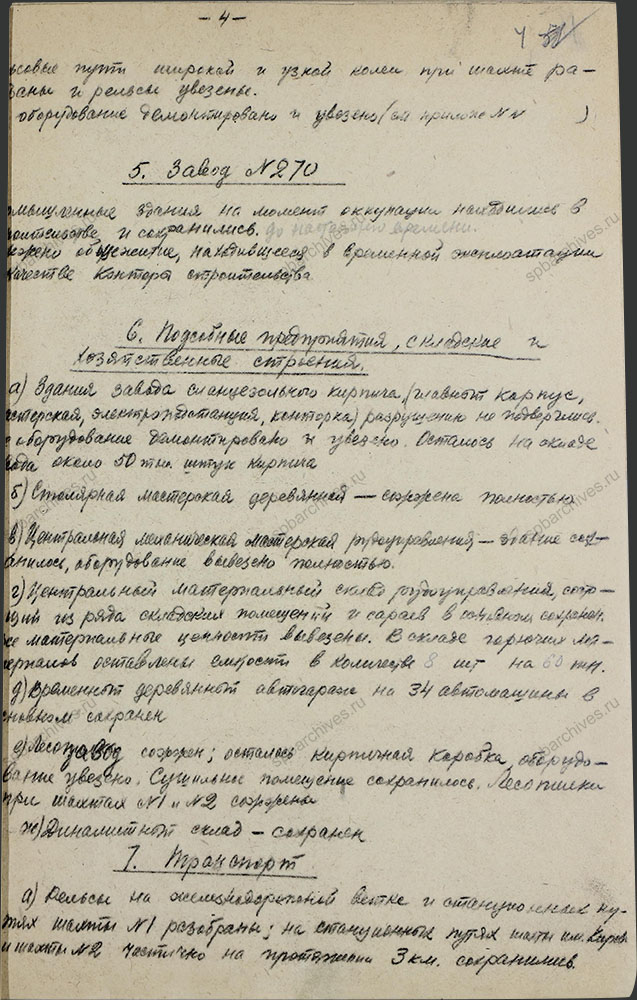 — 4 —
4
ьсовые пути широкой и узкой колеи при шахте ра-
ваны и рельсы увезены.
оборудование демонтировано и увезено (см прилож N )
5. Завод N 270
мышленные здания на момент оккупации находились в
оительстве и сохранились. до настоящего времени.
жено общежитие, находившееся в временной эксплоатации
качестве конторы строительства
6. Подсобные предприятия, складские и
хозяйственные строения.
а) Здания завода сланцезольного кирпича, (главный корпус,
астерская, электроподстанция, конторка) разрушению не подверглись.
оборудование демонтировано и увезено. Осталось на складе
ода около 50 тыс. штук кирпича
б) Столярная мастерская деревянная — сожжена полностью
в) Центральная механическая мастерская рудоуправления — здание сох-
ранилось, оборудование вывезено полностью.
г) Центральный материальный склад рудоуправления, состо-
ящий из ряда складских помещений и сараев в основном сохранен.
се материальные ценности вывезены. В складе горючих ма-
ериалов оставлены емкости в количестве 8 шт на 60 тн.
д) Временный деревянный автогараж на 34 автомашины в
сновном сохранен
е) Лесозавод сожжен; осталось кирпичная коробка, оборудо-
вание увезено. Сушильное помещение сохранилось. Лесопилки
при шахтах N1 и N2 сожжены
ж) Динамитный склад — сохранен
7. Транспорт
а) Рельсы на железнодорожной ветке и станционных пу-
тях шахты N1 разобраны; на станционных путях шахты им. Кирова
и шахты N2 частично на протяжении 3 км. сохранились.
spbarchives.ru
spbarchives.ru
spbarchives.ru
spbarchives.ru
spbarchives.ru
spbarchives.ru